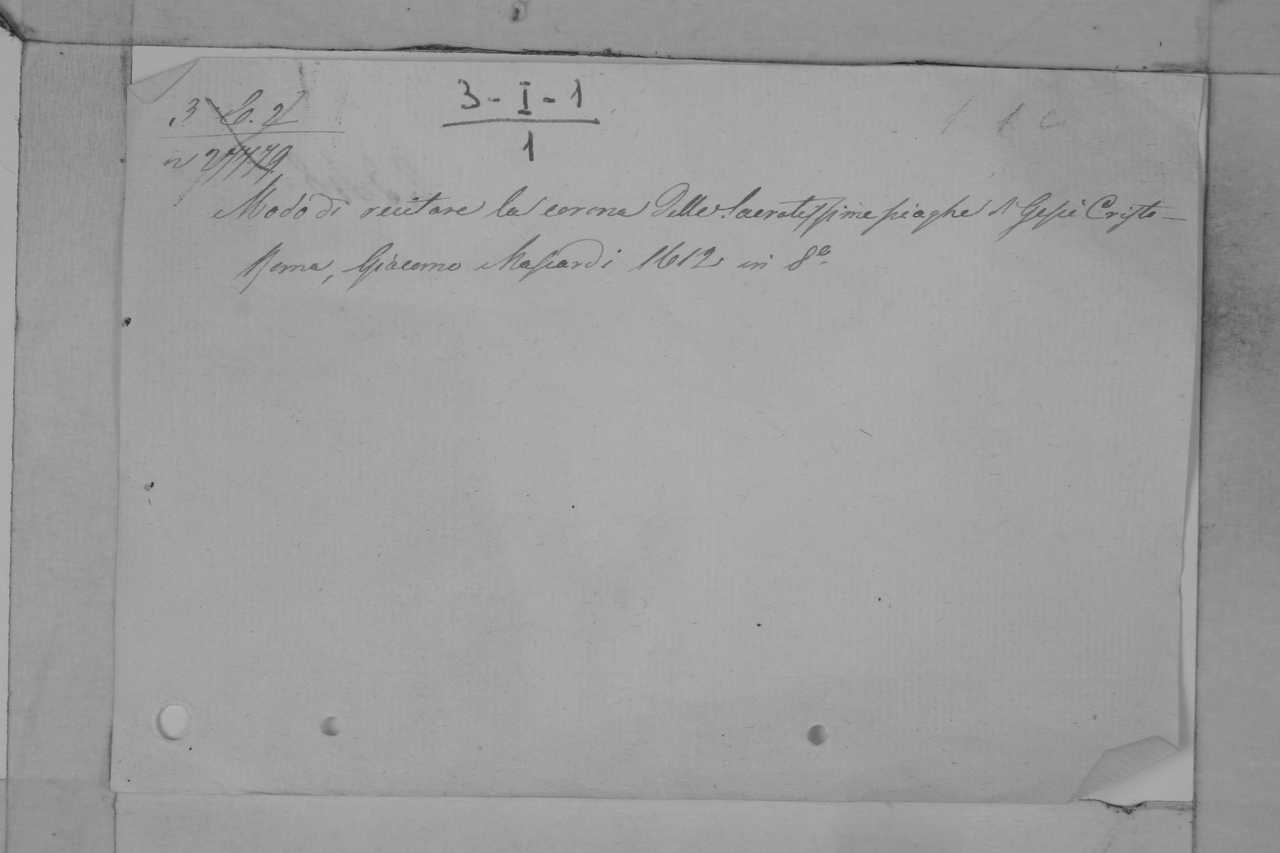 3-I-1
1
Modo di recitare la corona delle Sacratissime piaghe di Gesù Cristo —
Roma, Giacomo Mascardi 1612 in 8º